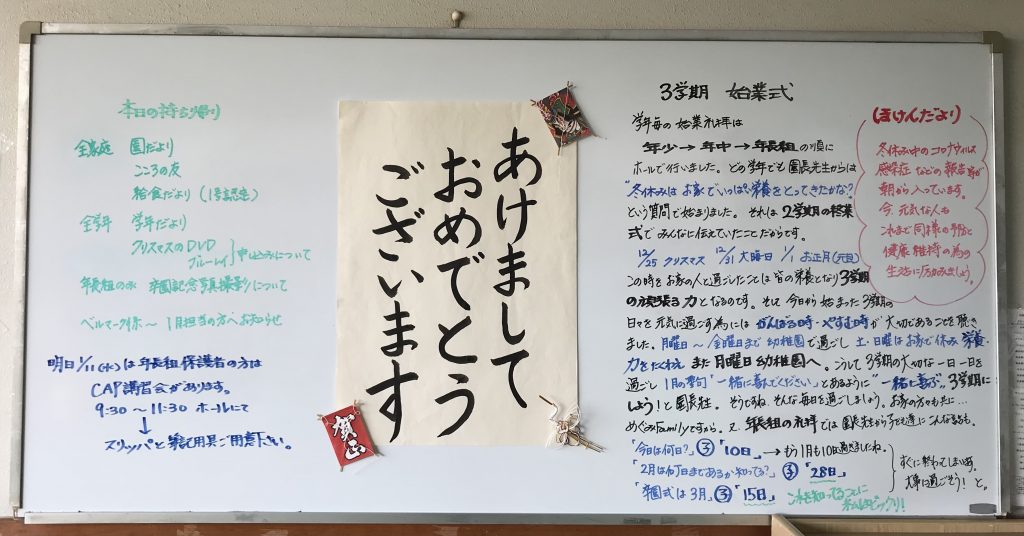 本日の持ち帰り
全家庭 園だより
こころの友
給食だより (1号認定)
全学年 学年だより
クリスマスのDVD
ブルーレイ
申し込みについて
年長組のみ 卒園記念写真撮影について
ベルマーク係〜 1月担当の方へお知らせ
明日 1/11(水)は年長組保護者の方は
CAP講習会があります。
9:30〜11:30 ホールにて
↓
スリッパと筆記用具ご用意下さい。
あけまして
おめでとう
ございます
賀正
3学期 始業式
学年毎の始業礼拝は
年少→年中→年長組の順に
ホールで行いました。どの学年でも園長先生からは
"冬休みはお家でいっぱい栄養をとってきたかな?"
という質問で始まりました。それは2学期の終業
式でみんなに伝えていたことだからです。
12/25 クリスマス 12/31 大晦日 1/1 お正月(元旦)
この時をお家の人と過ごしたことは皆の栄養となり3学期
の頑張る力となるのです。そして今日から始まった3学期の
日々を元気に過ごす為にはがんばる時・やすむ時が大切であることを聴き
ました。月曜日〜金曜日まで幼稚園で過ごし土・日曜はお家で休み栄養・
力をたくわえ また月曜日幼稚園へ。こうして3学期の大切な一日一日を
過ごし 1月の聖句「一緒に喜んでください」とあるように"一緒に喜ぶ"3学期に
しよう!と園長先生。そうですね そんな毎日を過ごしましょう。お家の方々も共に…
めぐみfamilyですから。又、年長組の礼拝では園長先生から子ども達にこんな話も。
「今日は何日?」子「10日」→もう1月も10日過ぎましたね。
「2月は何日まであるか知ってる?」子「28日」
「卒園式は3月」子「15日」
すぐに終わってしまいます。
大事に過ごそう!と。
これを知ってることに
私はビックリ!
(ほけんだより)
冬休み中のコロナウィルス
感染症などの報告等が
朝から入っています。
今、元気な人も
これまで同様の予防と
健康維持の為の
生活に励みましょう。